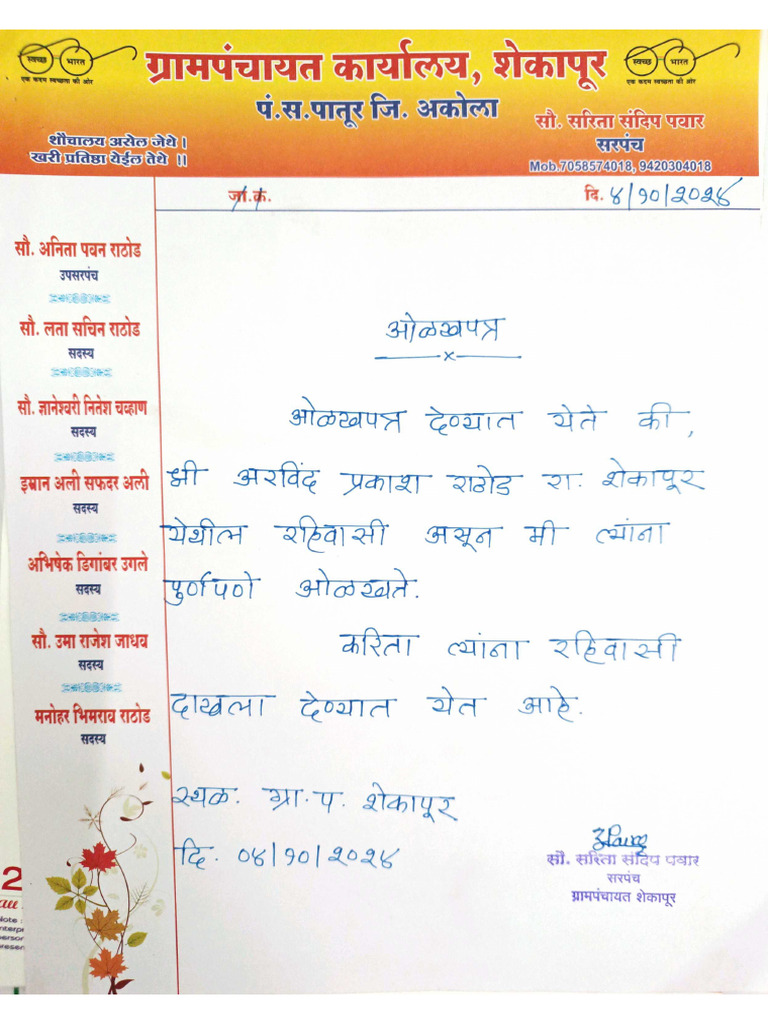 स्वच्छ भारत
एक कदम स्वच्छता की ओर
ग्रामपंचायत कार्यालय, शेकापूर
स्वच्छ भारत
एक कदम स्वच्छता की ओर
पं.स.पातूर जि. अकोला
शौचालय असेल जेथे।
खरी प्रतिष्ठा येईल तेथे ।।
सौ. सरिता संदिप पवार
सरपंच
Mob.7058574018, 9420304018
जा.क्रं.
दि. ४/१०/२०२४
सौ. अनिता पवन राठोड
उपसरपंच
सौ. लता सचिन राठोड
सदस्य
सौ. ज्ञानेश्वरी नितेश चव्हाण
सदस्य
इम्रान अली सफदर अली
सदस्य
अभिषेक डिगांबर उगले
सदस्य
सौ. उमा राजेश जाधव
सदस्य
मनोहर भिमराव राठोड
सदस्य
ओळखपत्र
ओळखपत्र देण्यात येते की,
श्री अरविंद प्रकाश राठोड रा. शेकापूर
येथील रहिवासी असून मी त्यांना
पुर्णपणे ओळखते.
करिता त्यांना रहिवासी
दाखला देण्यात येत आहे.
स्थळ. ग्रा.प. शेकापूर
दि. ०४/१०/२०२४
सौ. सरिता संदिप पवार
सरपंच
ग्रामपंचायत शेकापूर
2